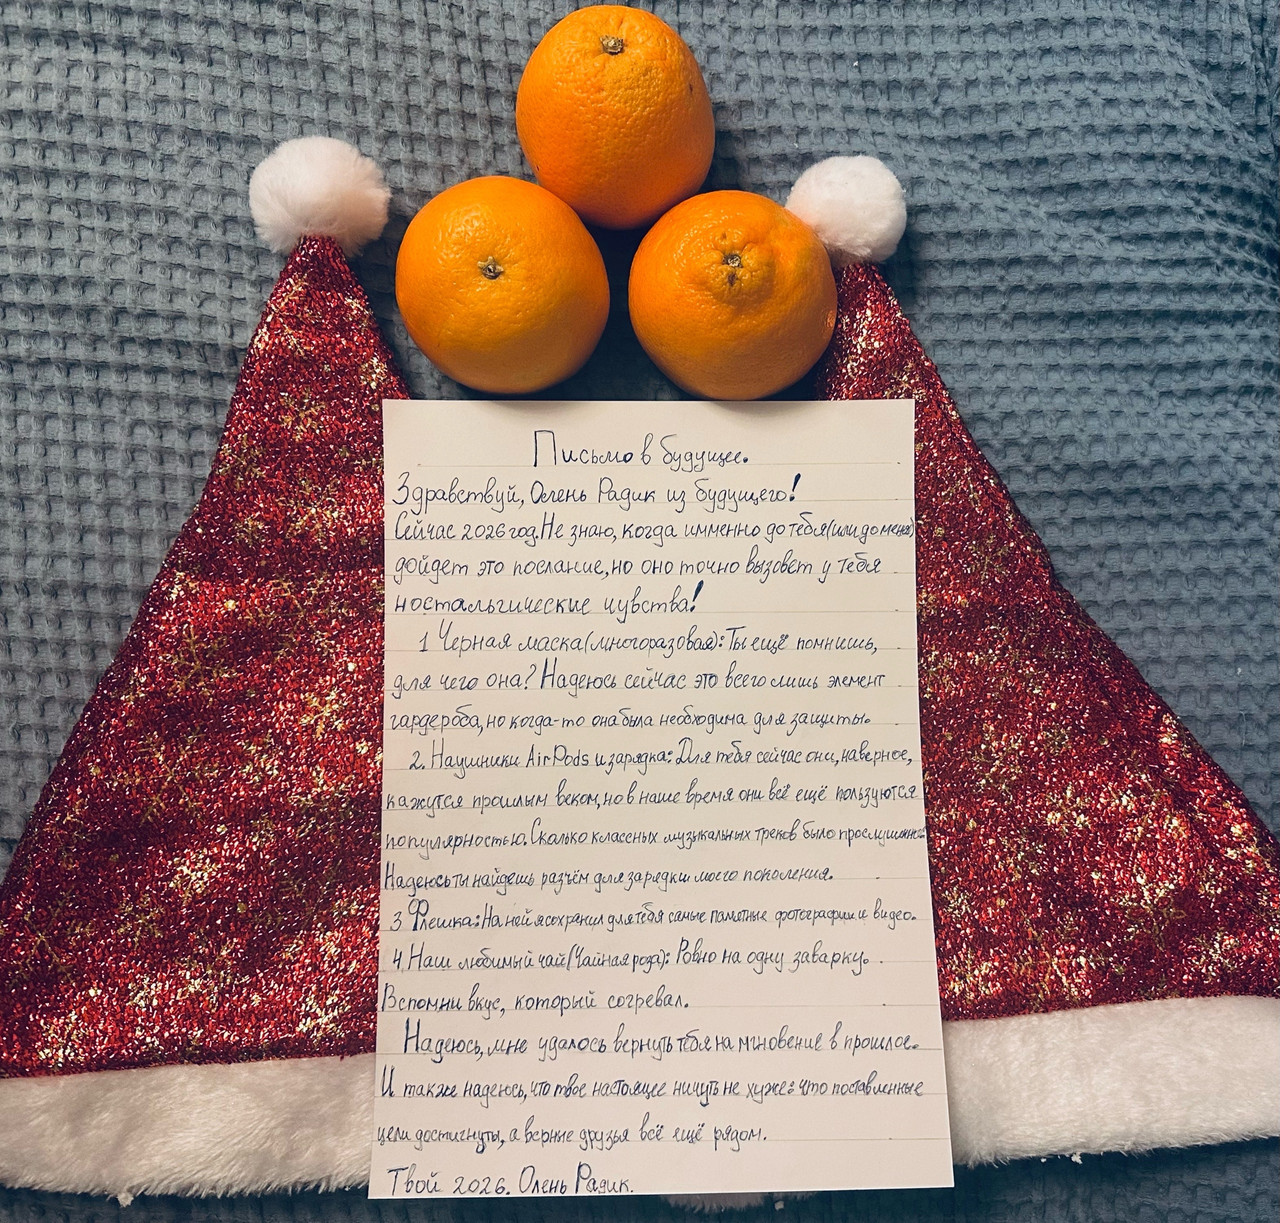 Письмо в будущее.
Здравствуй, Олень Радик из будущего!
Сейчас 2026 год. Не знаю, когда имменно до тебя (или до меня)
дойдет это послание, но оно точно вызовет у тебя
ностальгические чувства!
1 Черная маска (многоразовая): Ты ещё помнишь,
для чего она? Надеюсь сейчас это всего лишь элемент
гардероба, но когда-то она была необходима для защиты.
2. Наушники AirPods и зарядка: Для тебя сейчас они, наверное,
кажутся прошлым веком, но в наше время они всё ещё пользуются
популярностью. Сколько классных музыкальных треков было прослушанно.
Надеюсь ты найдешь разъём для зарядки моего поколения.
3 Флешка: На ней я сохранил для тебя самые памятные фотографии и видео.
4 Наш любимый чай (Чайная роза): Ровно на одну заварку.
Вспомни вкус, который согревал.
Надеюсь, мне удалось вернуть тебя на мгновение в прошлое.
И также надеюсь, что твое настоящее ничуть не хуже: что поставленные
цели достигнуты, а верные друзья всё ещё рядом.
Твой 2026. Олень Радик.